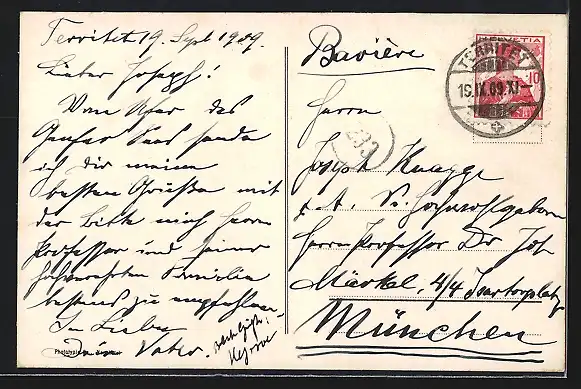 Territet 19. Sept 1909.
Lieber Joseph!
Vom Ufer des
Genfer Sees sende
ich dir meine
besten Grüße mit
der Bitte mich Herrn
Professor und seiner
hochverehrten Familie
bestens zu empfehlen.
In Liebe
Dein Vater.
Bavière
Herrn
Joseph Knagge
p. A. Sr. Hochwohlgeboren
Herrn Professor Dr Joh
Märkel. 4/4 Isartorplatz
München
HELVETIA
10
TERRITET
19.IX.09.XI
233